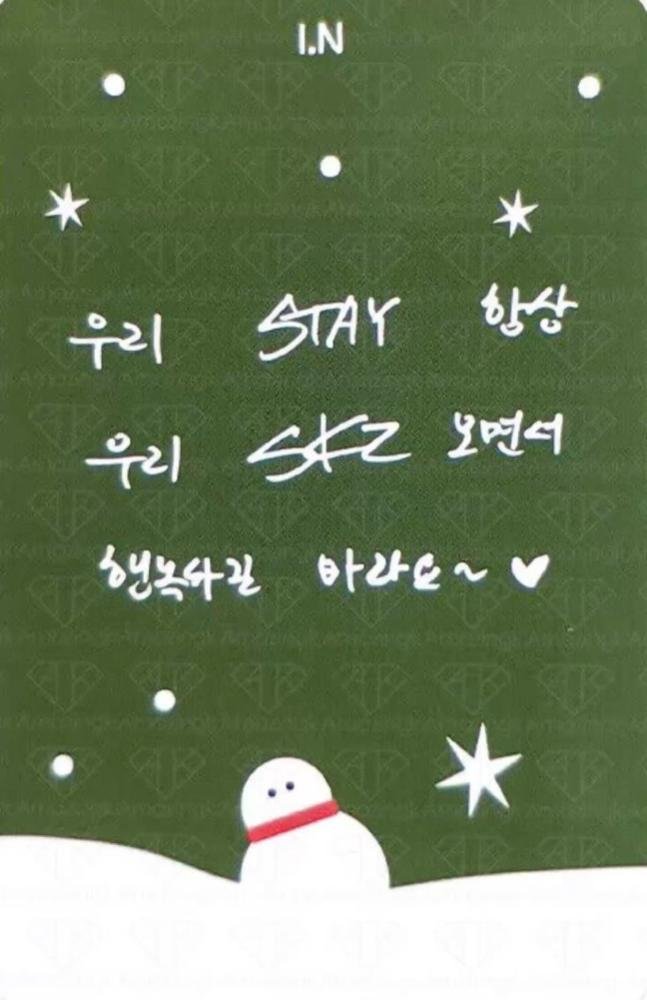 I.N
우리 STAY 항상
우리 SKZ 보면서
행복하길 바라요~ ♥